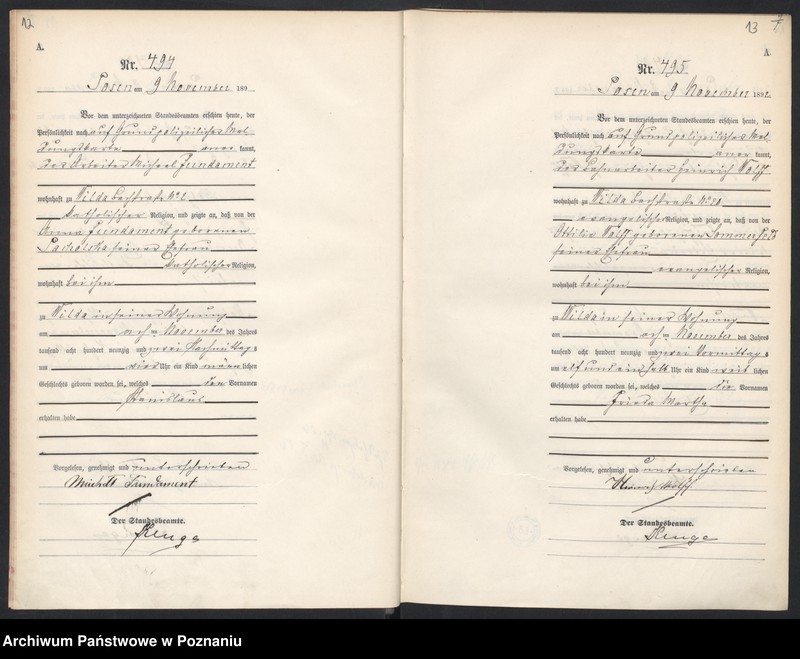 12
A.
Nr. 494
Posen am 9 November 189
Vor dem unterzeichneten Standesbeamten erschien heute, der
Persönlichkeit nach auf Grund polizeilicher Mel
dungskarte aner kannt,
der Arbeiter Michael Fundament
wohnhaft zu Wilda Bachstraße No
katholischer Religion, und zeigte an, daß von der
Anna Fundament geborenen
seiner Ehefrau
katholischer Religion,
wohnhaft bei ihm
zu Wilda in seiner Wohnung
am acht November des Jahres
tausend acht hundert neunzig und zwei Nachmittags
um vier Uhr ein Kind männ lichen
Geschlechts geboren worden sei, welches den Vornamen
Stanislaus
erhalten habe
Vorgelesen, genehmigt und unterschrieben
Fundament
Der Standesbeamte.
13
A
Nr. 495
Posen am 9 November 1892
Vor dem unterzeichneten Standesbeamten erschien heute, der
Persönlichkeit nach auf Grund polizeilicher Mel
dungskarte aner kannt,
der Bahnarbeiter Heinrich Wolff
wohnhaft zu Wilda Bachstraße No
evangelischer Religion, und zeigte an, daß von der
Ottilie Wolff geborenen Sommerfeld
seiner Ehefrau
evangelischer Religion,
wohnhaft bei ihm
zu Wilda in seiner Wohnung
am acht November des Jahres
tausend acht hundert neunzig und zwei Vormittags
um elf und ein halb Uhr ein Kind weib lichen
Geschlechts geboren worden sei, welches die Vornamen
Frieda Martha
erhalten habe
Vorgelesen, genehmigt und unterschrieben
Heinrich Wolff
Der Standesbeamte.
Archiwum Państwowe w Poznaniu